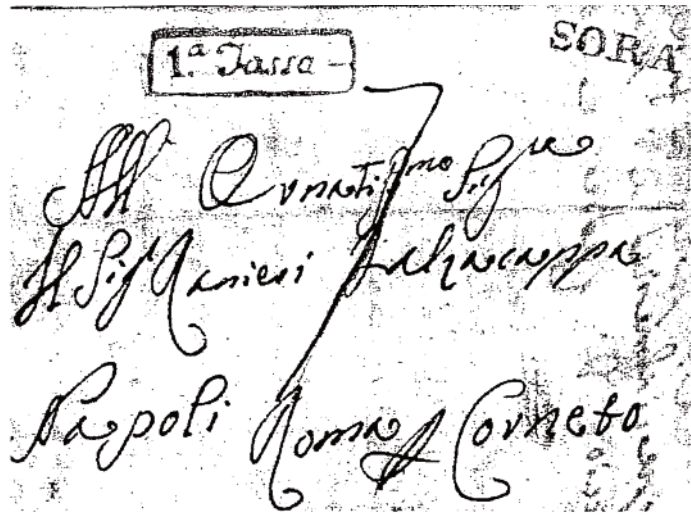 1.ª Tassa - SORA
7
All' Ornatissmo Sigre
Il Sigr Ranieri Falzacappa
Napoli Roma p Corneto